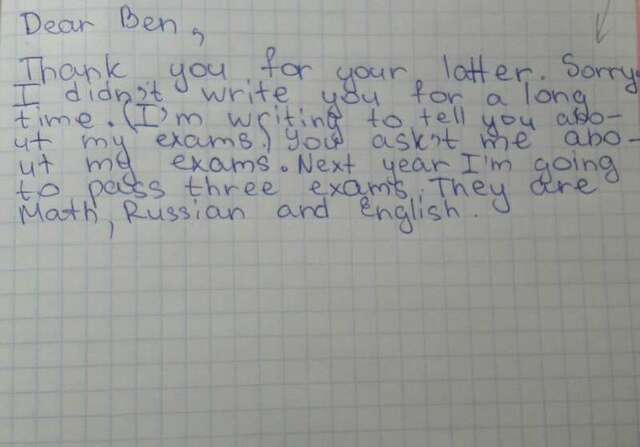 Dear Ben,
Thank you for your latter. Sorry
I didn't write you for a long
time. (I'm writing to tell you abo-
ut my exams.) You ask't me abo-
ut my exams. Next year I'm going
to pass three exams. They are
Math, Russian and English.